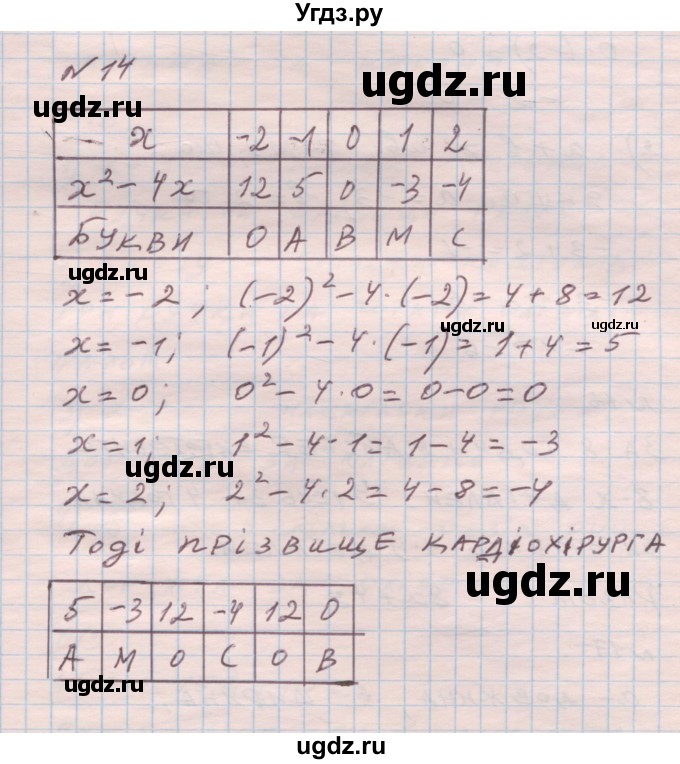 Угдз.ру
№ 14
ugdz.ru
ugdz.ru
x -2 -1 0 1 2
x² - 4x 12 5 0 -3 -4
БУКВИ О А В М С
ugdz.ru
x = -2; (-2)² - 4·(-2) = 4 + 8 = 12
ugdz.ru
ugdz.ru
x = -1; (-1)² - 4·(-1) = 1 + 4 = 5
x = 0; 0² - 4·0 = 0 - 0 = 0
x = 1; 1² - 4·1 = 1 - 4 = -3
ugdz.ru
x = 2; 2² - 4·2 = 4 - 8 = -4
Тоді прізвище кардіохірурга
ugdz.ru
5 -3 12 -4 12 0
А М О С О В
ugdz.ru
ugdz.ru